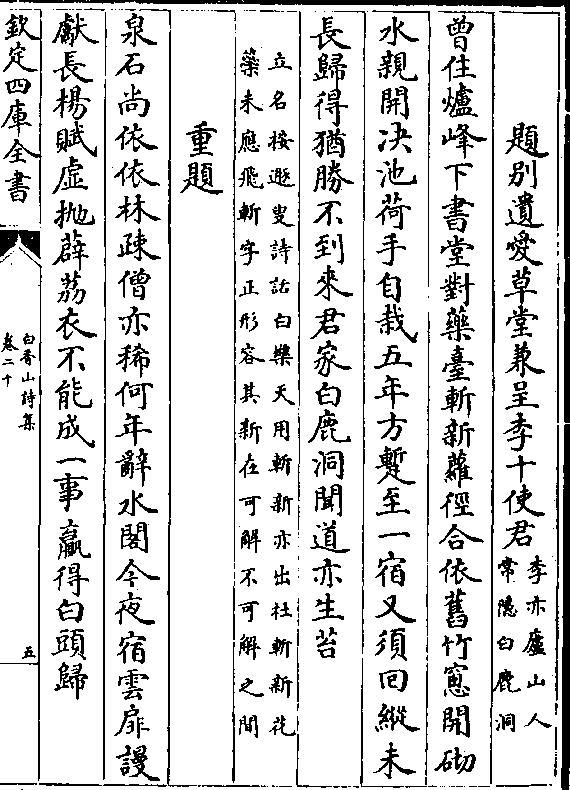 題別遺愛草堂兼呈李十使君李亦廬山人
常隠白鹿洞
曾住爐峰下書堂對藥臺斬新蘿徑合依舊竹窻開砌
水親開决池荷手自栽五年方蹔至一宿又須回縱未
長歸得猶勝不到來君家白鹿洞聞道亦生苔
立名按遯叟詩話白樂天用斬新亦出杜斬新花
蘂未應飛斬字正形容其新在可解不可解之間
重題
泉石尚依依林疎僧亦稀何年辭水閣今夜宿雲扉謾
獻長楊賦虚抛薜荔衣不能成一事贏得白頭歸
欽定四庫全書
白香山詩集
卷二十
五